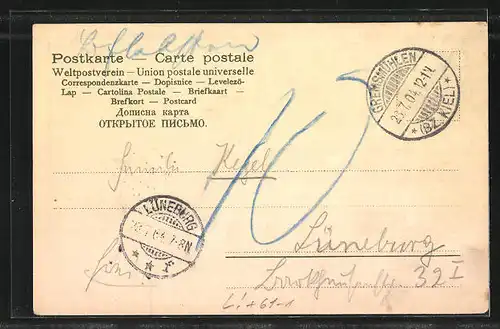 Postkarte — Carte postale
Weltpostverein — Union postale universelle
Correspondenzkarte — Dopisnice — Levelező-
Lap — Cartolina Postale — Briefkaart —
Brefkort — Postcard
Дописна карта
ОТКРЫТОЕ ПИСЬМО.
GREMSMÜHLEN
23.7.04.12-1V.
* (BZ. KIEL) *
10
Familie Kegel
LÜNEBURG
7-8N
* * I
Lüneburg
32 I